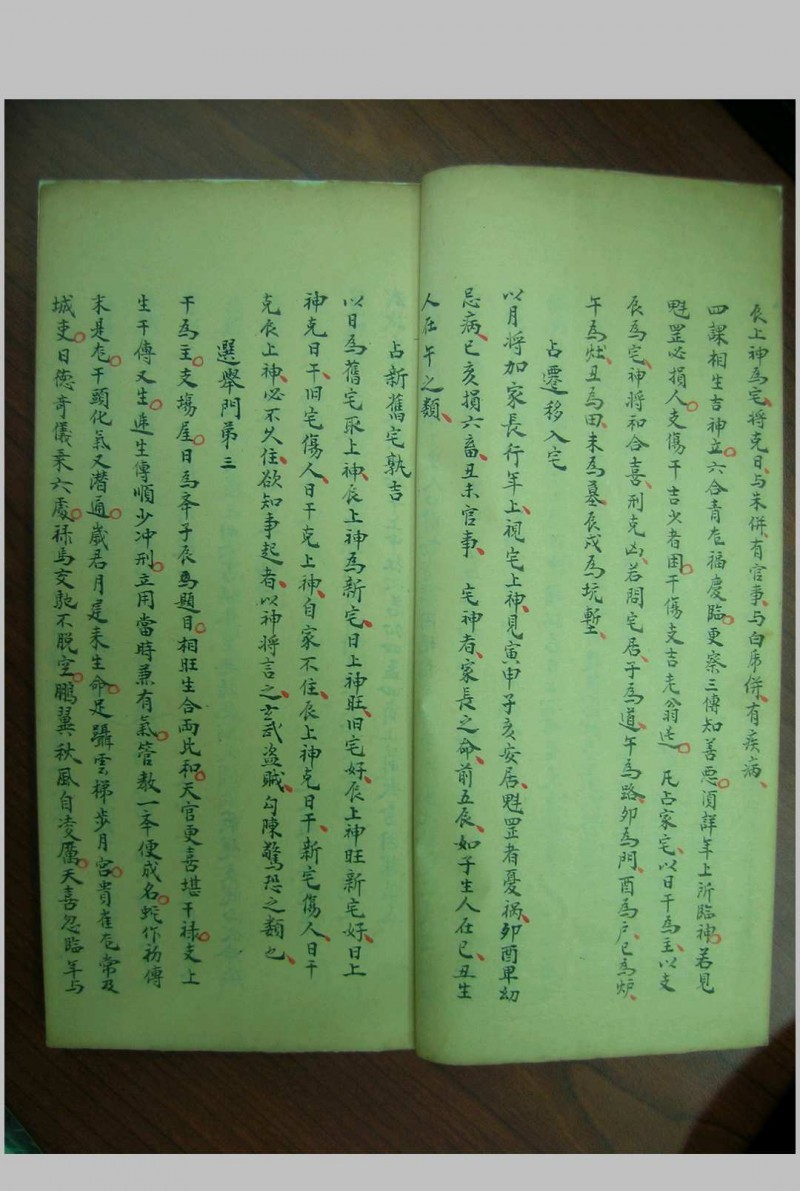 辰上神為宅、將克日、与朱併、有官事、与白虎併、有疾病、
四課相生吉神立。六合青龙福慶臨。更察三傳知善惡。須詳年上所臨神。若見
魁罡必損人。支傷干吉少者困。干傷支吉老翁迍。凡占家宅、以日干為主、以支
辰為宅、神將和合喜、刑克凶、若問宅居、子為道、午為路、卯為門、酉為戶、巳為炉、
午為灶、丑為田、未為墓、辰戌為坑塹、
占遷移入宅
以月將加家長行年上、視宅上神、見寅申子亥安居、魁罡者憂禍、卯酉卑幼
忌病、巳亥損六畜、丑未官事、宅神者、家長之命、前五辰、如子生人在巳、丑生
人在午之類、
占新舊宅孰吉
以日為舊宅取上神、辰上神為新宅、日上神旺、旧宅好、辰上神旺新宅好、日上
神克日干、旧宅傷人、日干克上神、自家不住、辰上神克日干、新宅傷人、日干
克辰上神、必不久住、欲知事起者、以神將言之、玄武盜賊、勾陳驚恐之類也、
選舉門第三
干為主。支塲屋。日為夲子辰為題目。相旺生合两比和。天官更喜堪干禄。支上
生干傳又生。遞生傳順少冲刑。立用當時兼有氣。管教一夲便成名。蛇作初傳
末是龙。干頭化氣又潜通。歲君月建来生命。足躡雲梯步月宮。貴雀龙常及
城吏。日德奇儀乗六處。禄馬交馳不脱空。鵬翼秋風自凌厲。天喜忽臨年与